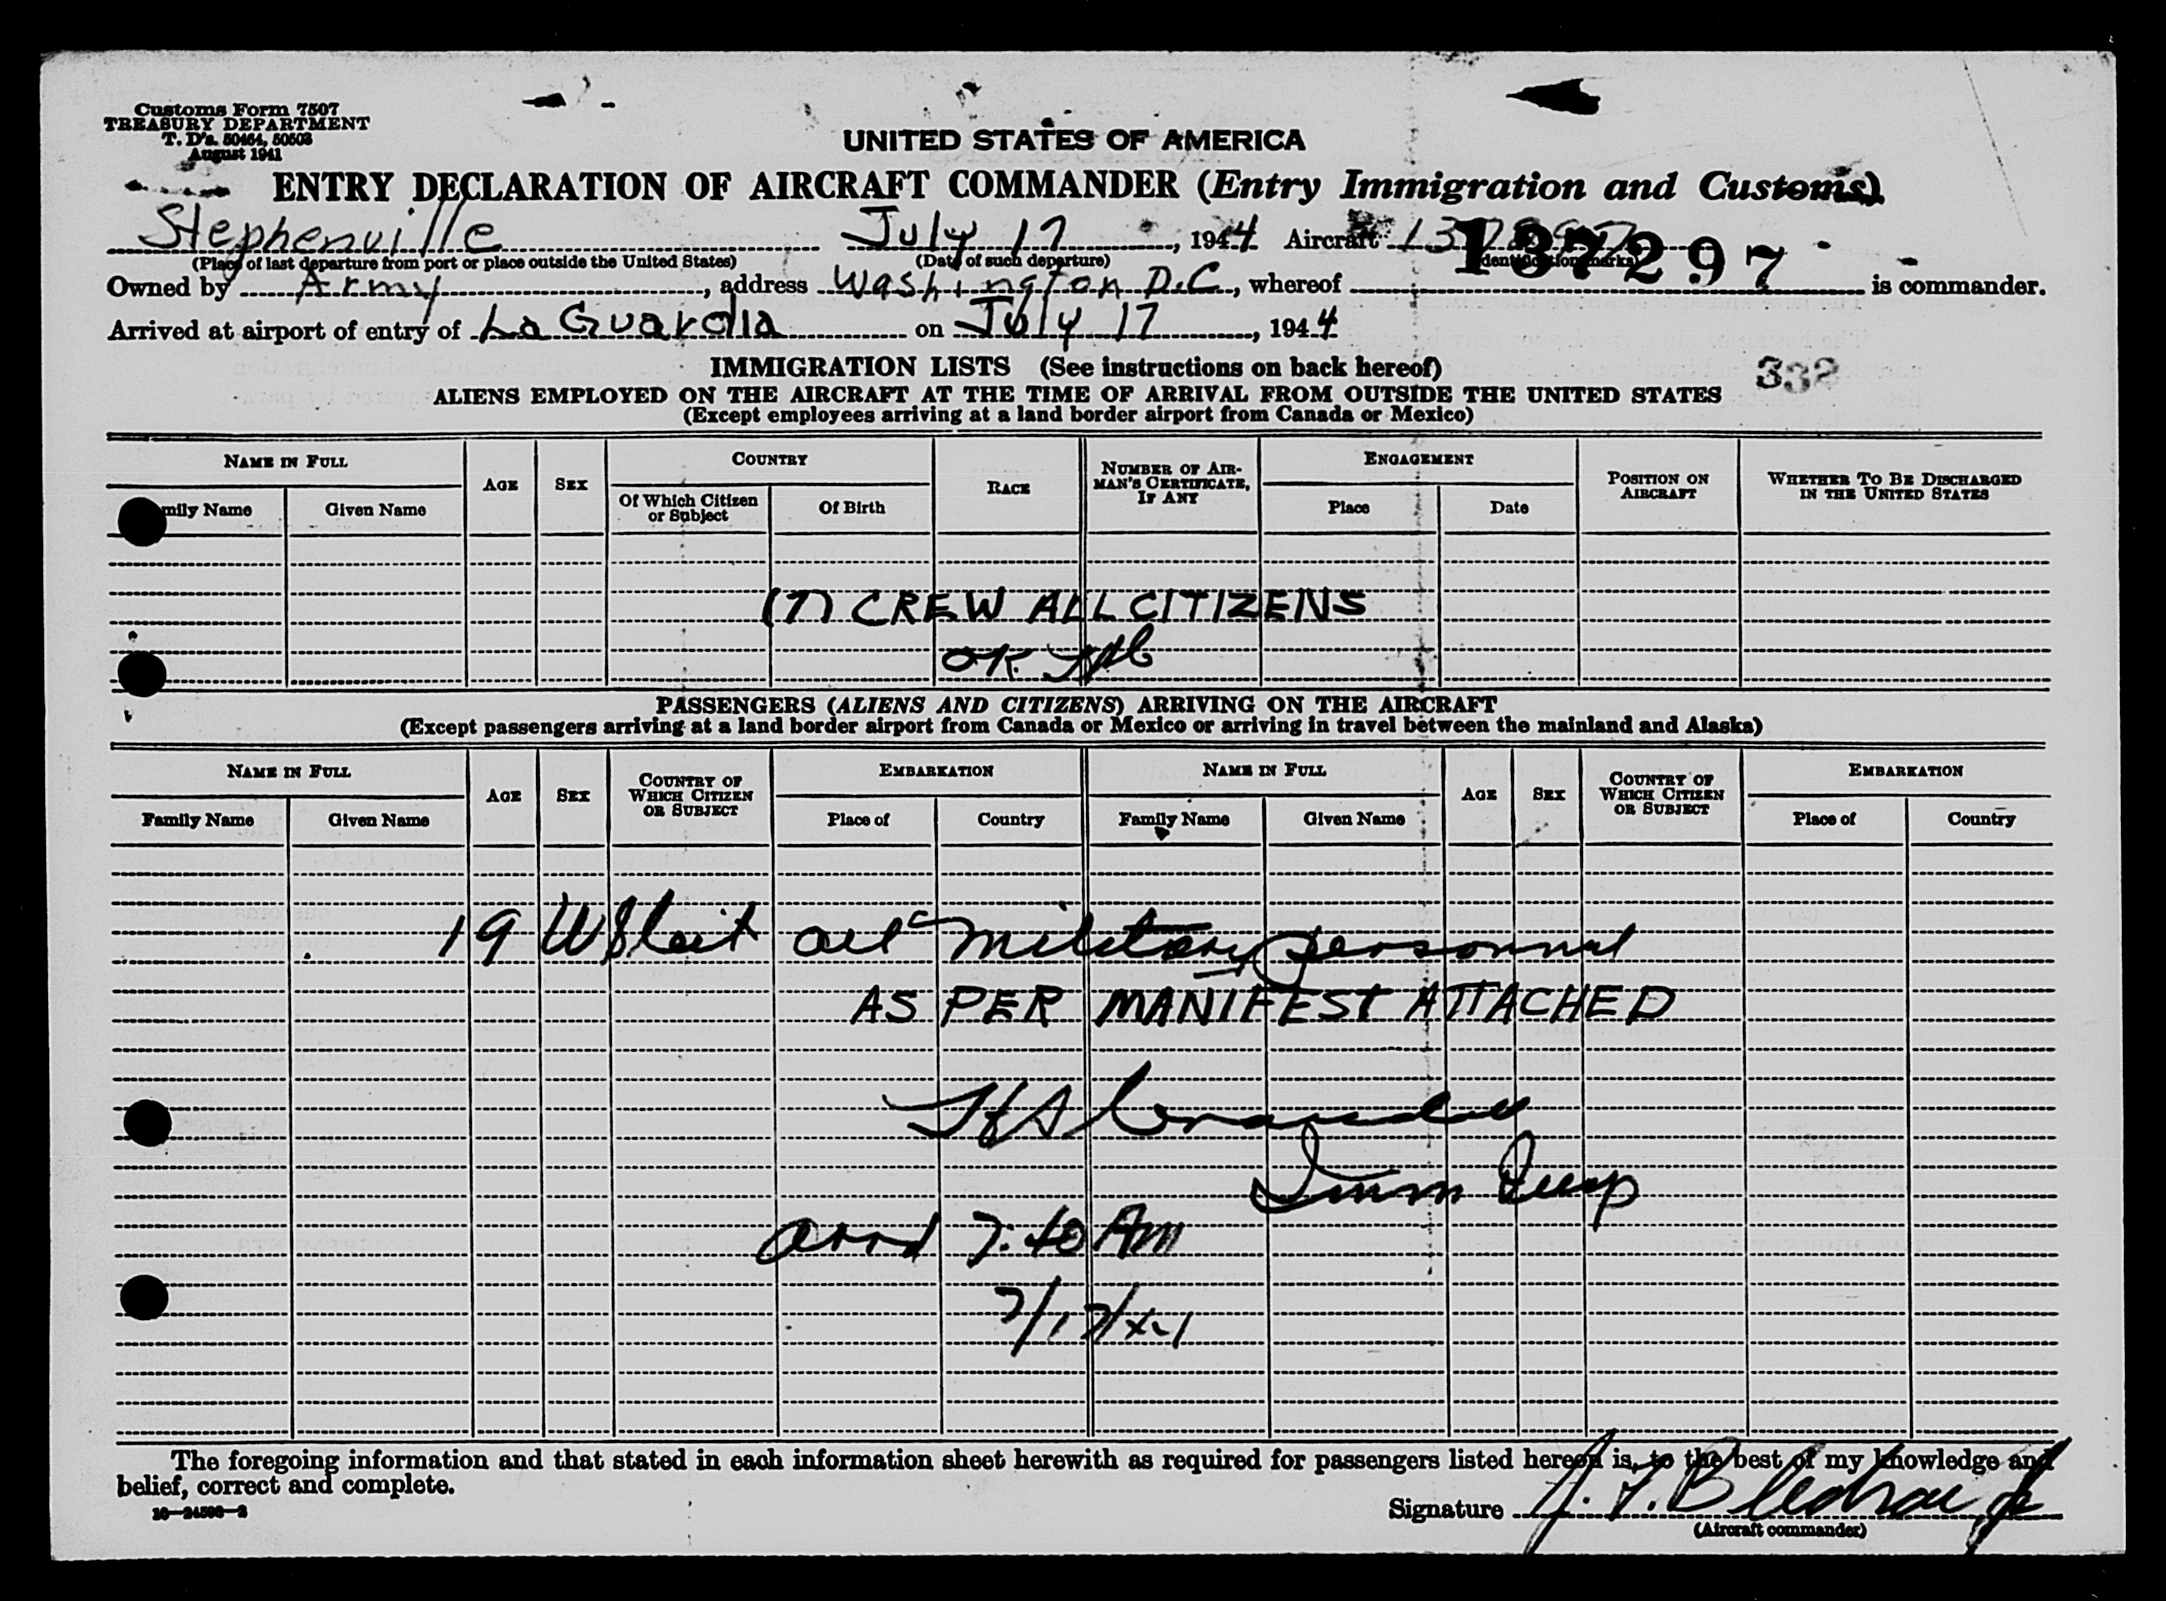 Customs Form 7507
TREASURY DEPARTMENT
T. D's. 50464, 50503
August 1941
UNITED STATES OF AMERICA
ENTRY DECLARATION OF AIRCRAFT COMMANDER (Entry Immigration and Customs)
Stephenville July 17, 1944 Aircraft
(Place of last departure from port or place outside the United States) (Date of such departure) (Identification marks)
137297
Owned by Army, address Washington D.C., whereof is commander.
Arrived at airport of entry of La Guardia on July 17, 1944
IMMIGRATION LISTS (See instructions on back hereof)
338
ALIENS EMPLOYED ON THE AIRCRAFT AT THE TIME OF ARRIVAL FROM OUTSIDE THE UNITED STATES
(Except employees arriving at a land border airport from Canada or Mexico)
NAME IN FULL AGE SEX COUNTRY RACE NUMBER OF AIRMAN'S CERTIFICATE, IF ANY ENGAGEMENT POSITION ON AIRCRAFT WHETHER TO BE DISCHARGED IN THE UNITED STATES
mily Name Given Name Of Which Citizen or Subject Of Birth Place Date
(7) CREW ALL CITIZENS
OK
PASSENGERS (ALIENS AND CITIZENS) ARRIVING ON THE AIRCRAFT
(Except passengers arriving at a land border airport from Canada or Mexico or arriving in travel between the mainland and Alaska)
NAME IN FULL AGE SEX COUNTRY OF WHICH CITIZEN OR SUBJECT EMBARKATION NAME IN FULL AGE SEX COUNTRY OF WHICH CITIZEN OR SUBJECT EMBARKATION
Family Name Given Name Place of Country Family Name Given Name Place of Country
19 US cit all military personnel
AS PER MANIFEST ATTACHED
Immn Insp
arrd 7:40 AM
The foregoing information and that stated in each information sheet herewith as required for passengers listed hereon is, to the best of my knowledge and
belief, correct and complete.
Signature
(Aircraft commander)